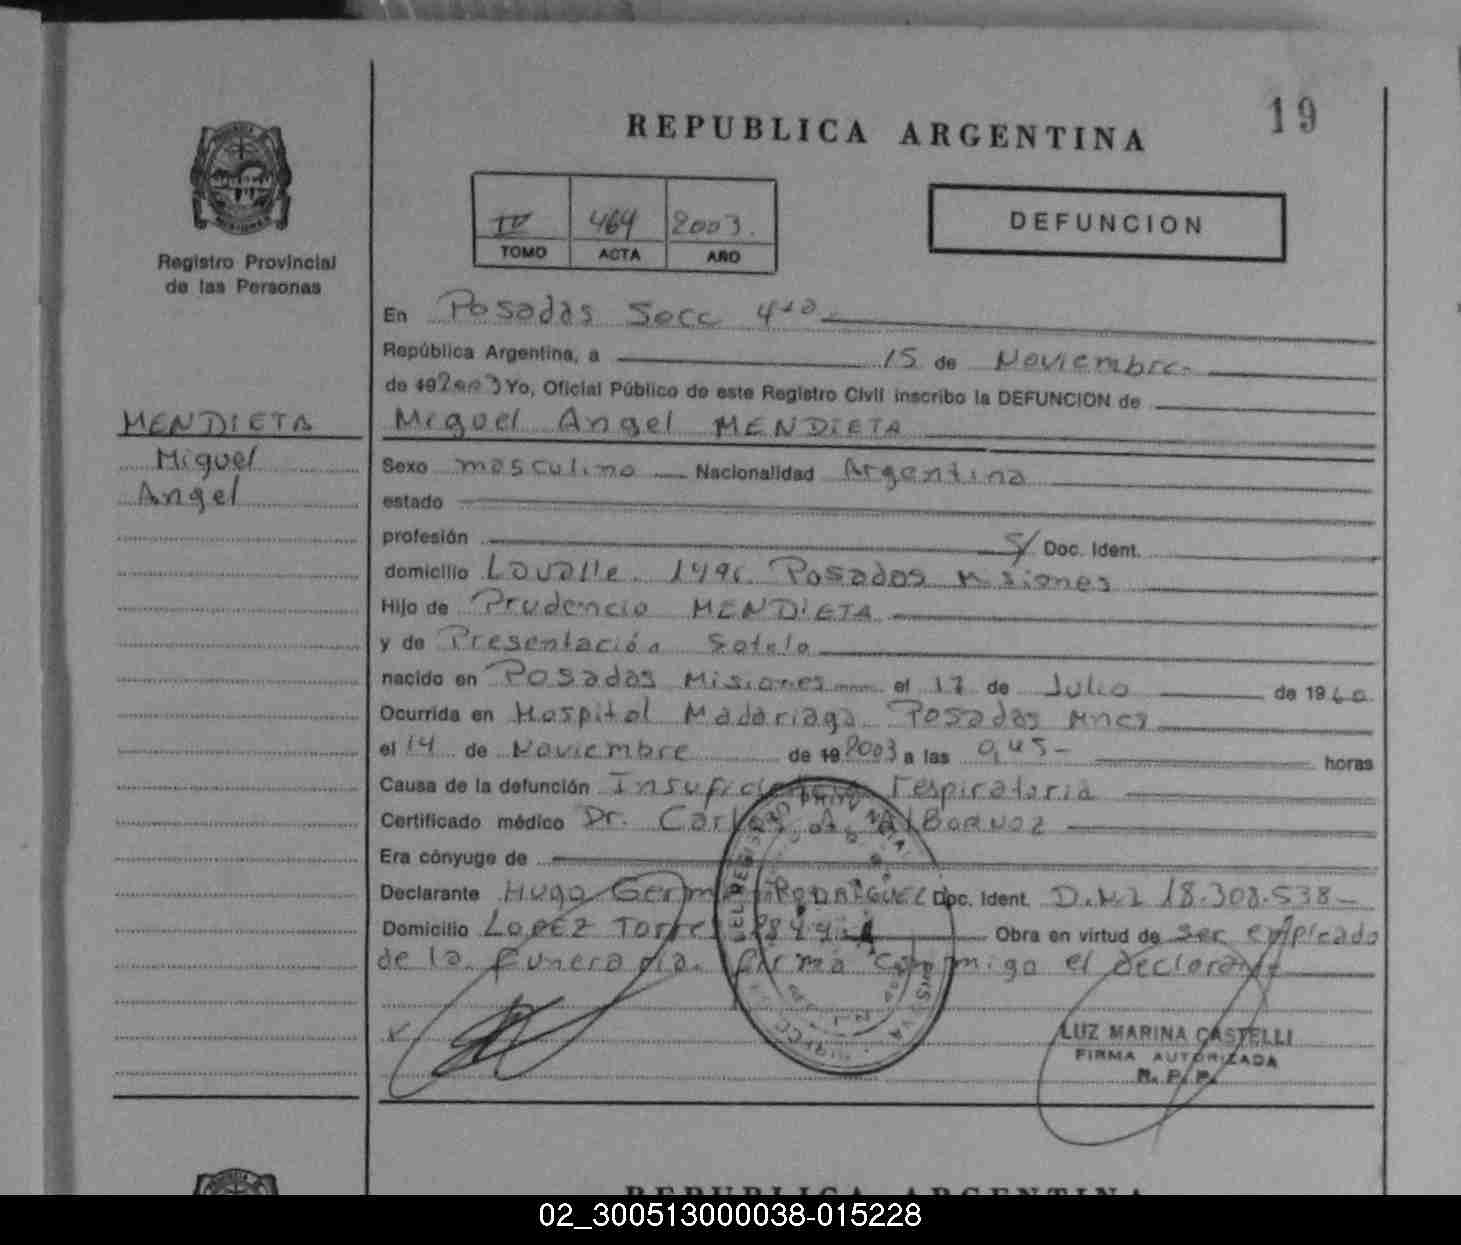 19
REPUBLICA ARGENTINA
DEFUNCION
IV 464 2003.
TOMO ACTA AÑO
Registro Provincial
de las Personas
MENDIETA
Miguel
Angel
En Posadas Secc 4ta
República Argentina, a 15 de Noviembre
de 192003 Yo, Oficial Público de este Registro Civil inscribo la DEFUNCION de
Miguel Angel MENDIETA
Sexo masculino Nacionalidad Argentina
estado
profesión S/ Doc. Ident.
domicilio Lavalle Posadas Misiones
Hijo de Prudencio MENDIETA
y de Presentación Sotelo
nacido en Posadas Misiones el 17 de Julio de 1960
Ocurrida en Hospital Madariaga Posadas Mnes
el 14 de Noviembre de 192003 a las 0,45- horas
Causa de la defunción Insuficiencia respiratoria
Certificado médico Dr. Carlos A. AlBORNOZ
Era cónyuge de
Declarante Hugo Germán RODRIGUEZ Doc. Ident. D.N.I 18.308.538-
Domicilio LOPEZ Torres Obra en virtud de ser empleado
de la funeraria. firma conmigo el declarante
LUZ MARINA CASTELLI
FIRMA AUTORIZADA
R. P. P.
REPUBLICA ARGENTINA
02_300513000038-015228